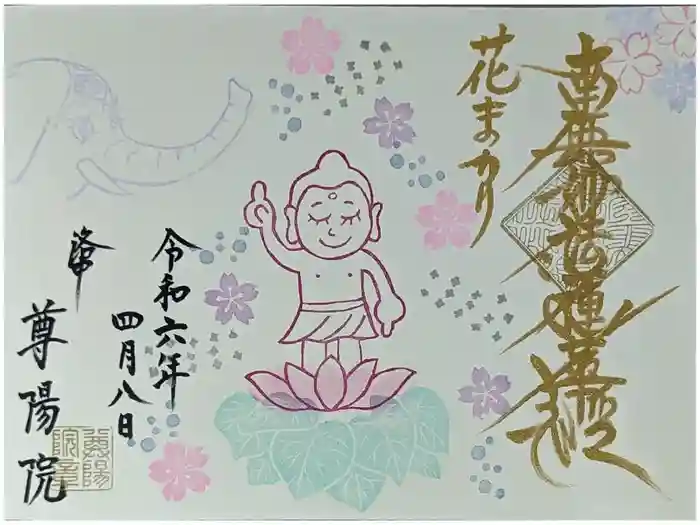 南無妙法蓮華経
花まつり
令和六年
四月八日
尊陽院